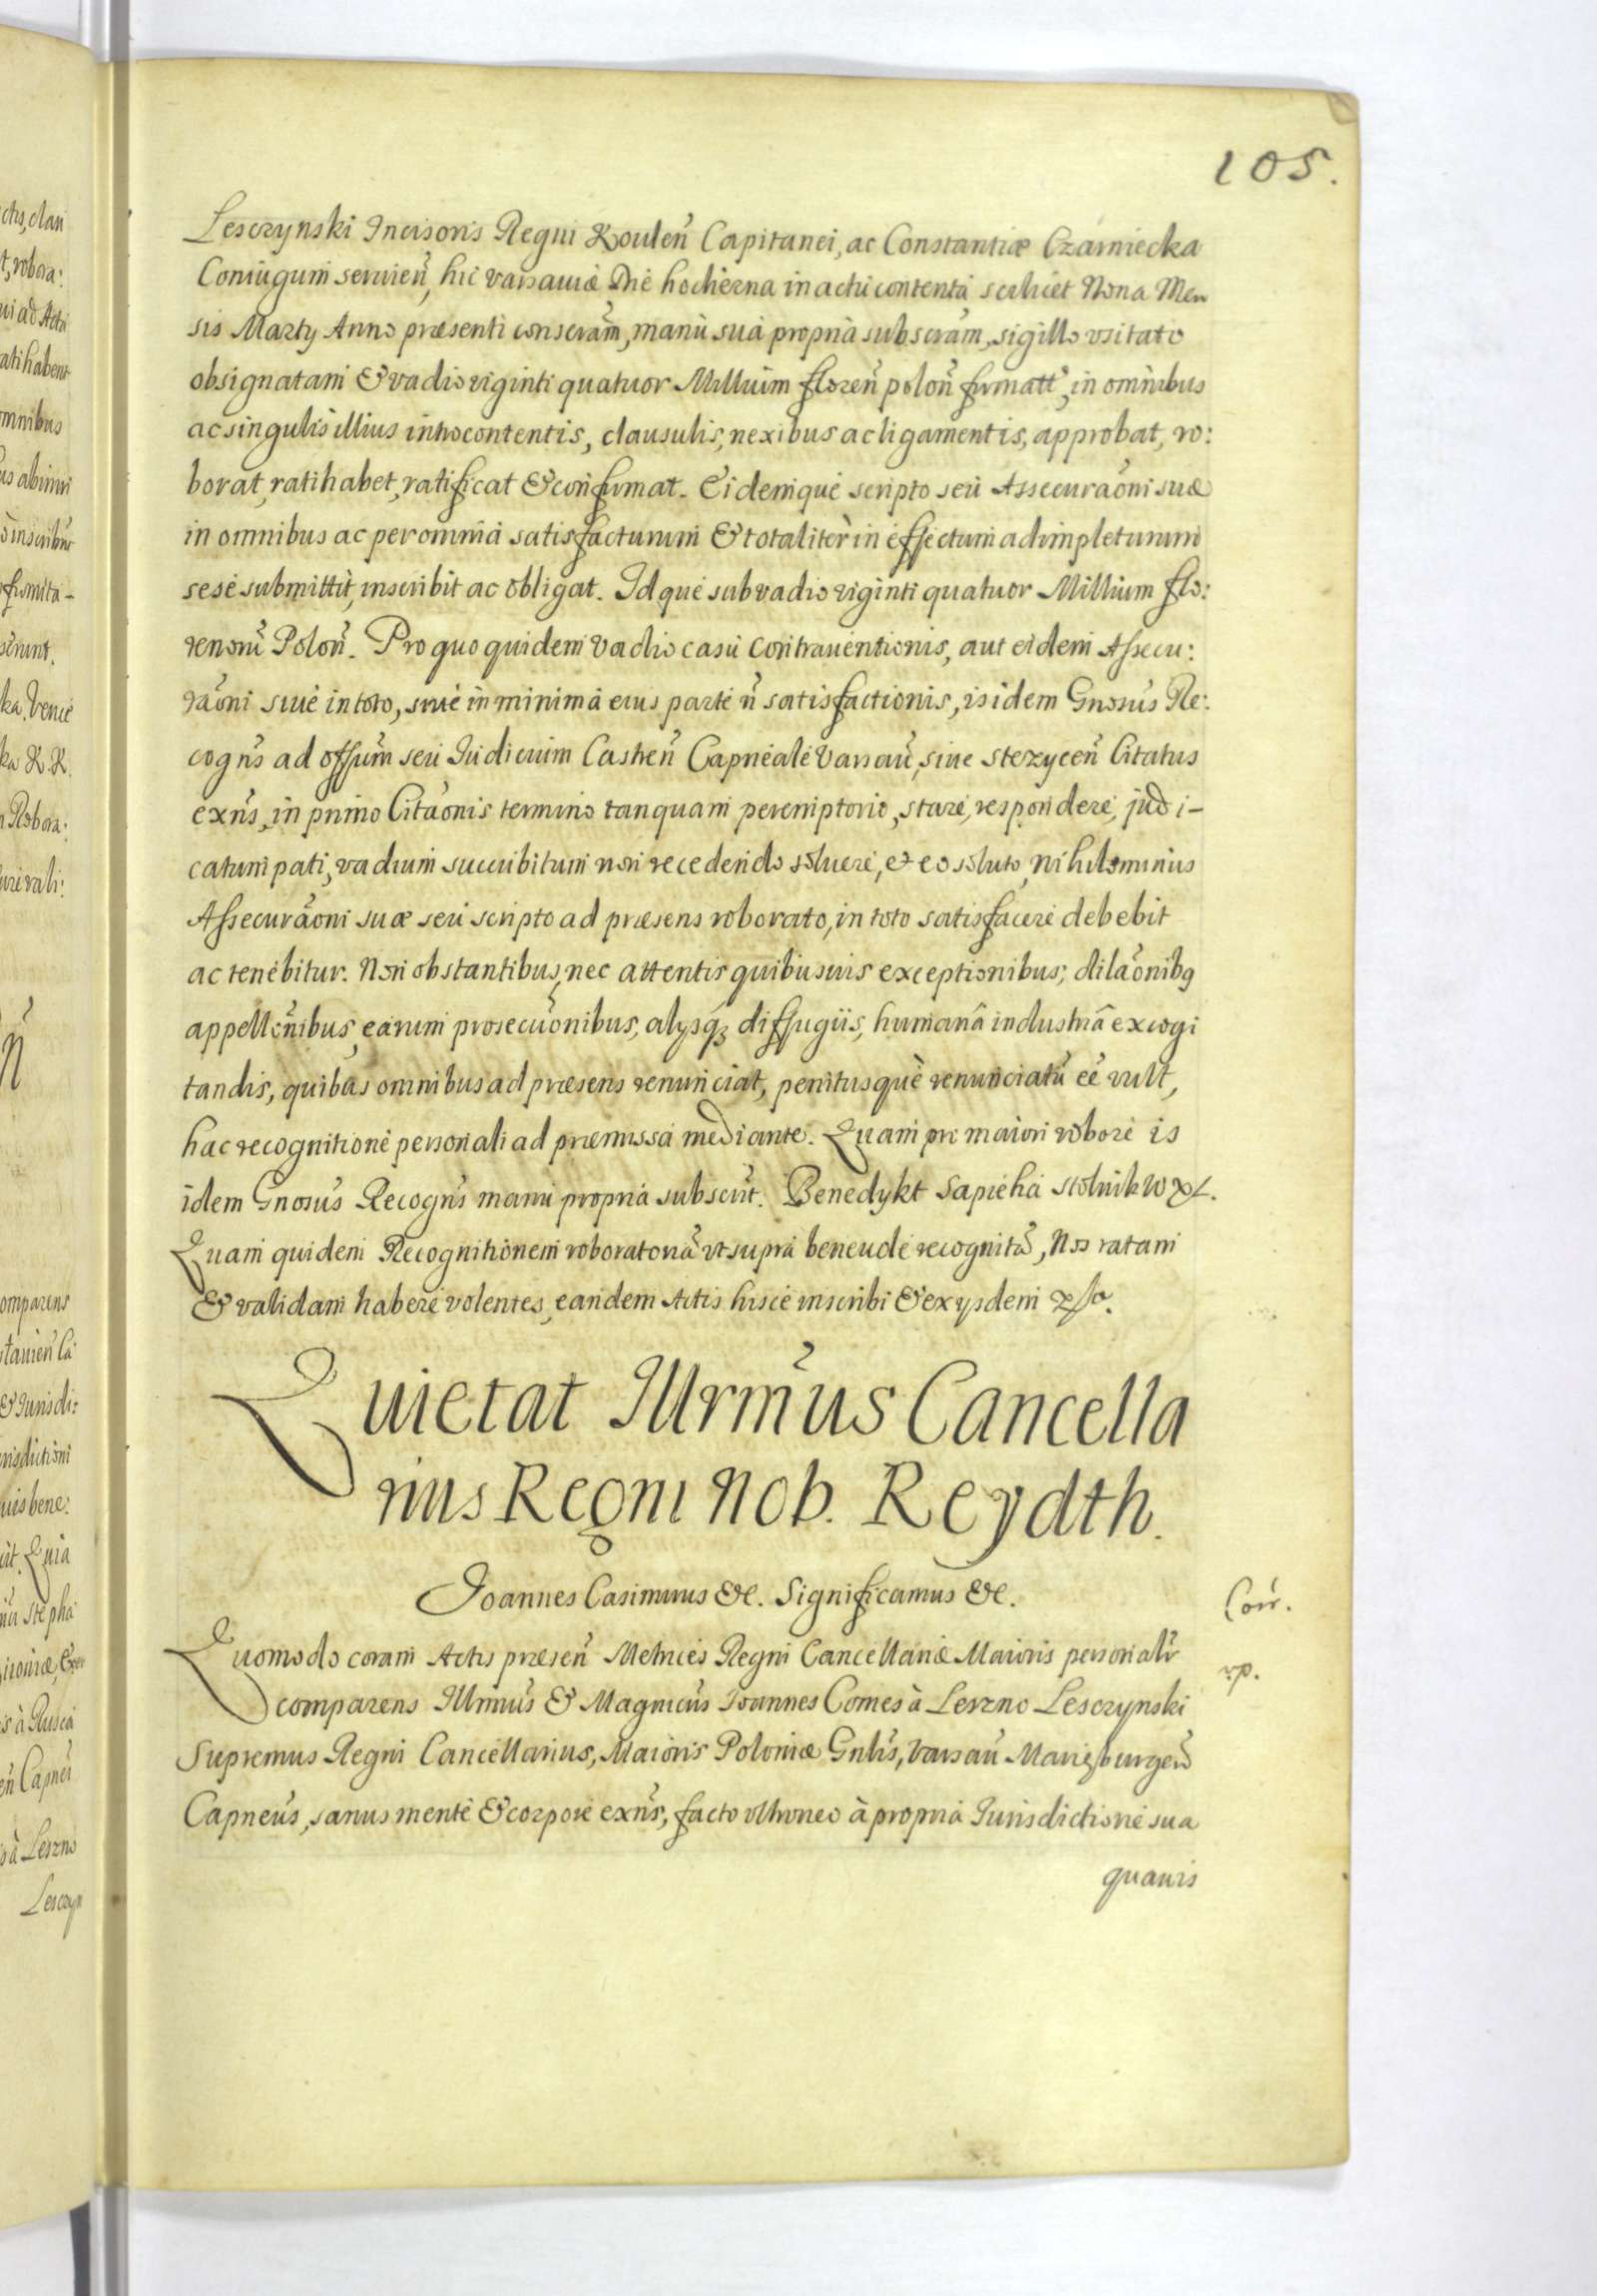 105.
Lesczynski Incisoris Regni Koulen̄ Capitanei, ac Constantiæ Czarniecka
Coniugum seruien̄, hic varsauiæ Die hodierna in actu contenta scilicet Nona Men
sis Marty Anno præsenti conscrām, manu sua propria subscrām, sigillo vsitato
obsignatam & vadio viginti quatuor Millium floren̄ polon̄ firmatt̄, in omnibus
ac singulis illius in hoc contentis, clausulis, nexibus ac ligamentis, approbat, ro:
borat, ratihabet, ratificat & confirmat. Eidemque scripto seu Assecurāoni suæ
in omnibus ac per omnia satisfacturum & totaliter in effectum adimpleturum
sese submittit, inscribit ac obligat. Idque sub vadio viginti quatuor Millium flo:
renorū Polon̄. Pro quo quidem vadio casu contrauentionis, aut eidem Assecu:
rāoni siue in toto, siue in minima eius parte n̄ satisfactionis, is idem Gnosus Re:
cogn̄s ad offūm seu Iudicium Castren̄ Capneale Varsau̅, siue stezycen̄ Citatus
exn̄s, in primo Citāonis termino tanquam peremptorio, stare, respondere, judi-
catum pati, vadium succubitum non recedendo soluere, et eo soluto, nihilominus
Assecurāoni suæ seu scripto ad præsens roborato, in toto satisfacere debebit
ac tenebitur. Non obstantibus, nec attentis quibusuis exceptionibus, dilāonibq
appellōnibus, earum prosecuōnibus, alysq́ diffugiis, humanâ industriâ excogi
tandis, quibus omnibus ad præsens renunciat, penitusquè renunciatū eē vult,
hac recognitione personali ad præmissa mediante. Quam pri maiori robore is
idem Gnosus Recogn̄s manu propria subscrit. Benedykt Sapieha stolnik WXL.
Quam quidem Recognitionem roboratoriā vt supra beneude recognitā, Nos ratam
& validam habere volentes, eandem Actis hisce inscribi & exysdem
Quietat Illrmūs Cancella
rius Regni Nob. Reydth.
Joannes Casimirus &c. Significamus &c.
Corr.
Quomodo coram Actis præsen̄ Metrices Regni Cancellariæ Maioris personalr̄
rp.
comparens Illrmūs & Magnicūs Joannes Comes à Leszno Lesczynski
Supremus Regni Cancellarius, Maioris Poloniæ Gnlis, Varsau̅ Mariæburgen̄
Capneus, sanus mente & corpore exn̄s, facto vltroneo à propria Iurisdictione sua
quauis